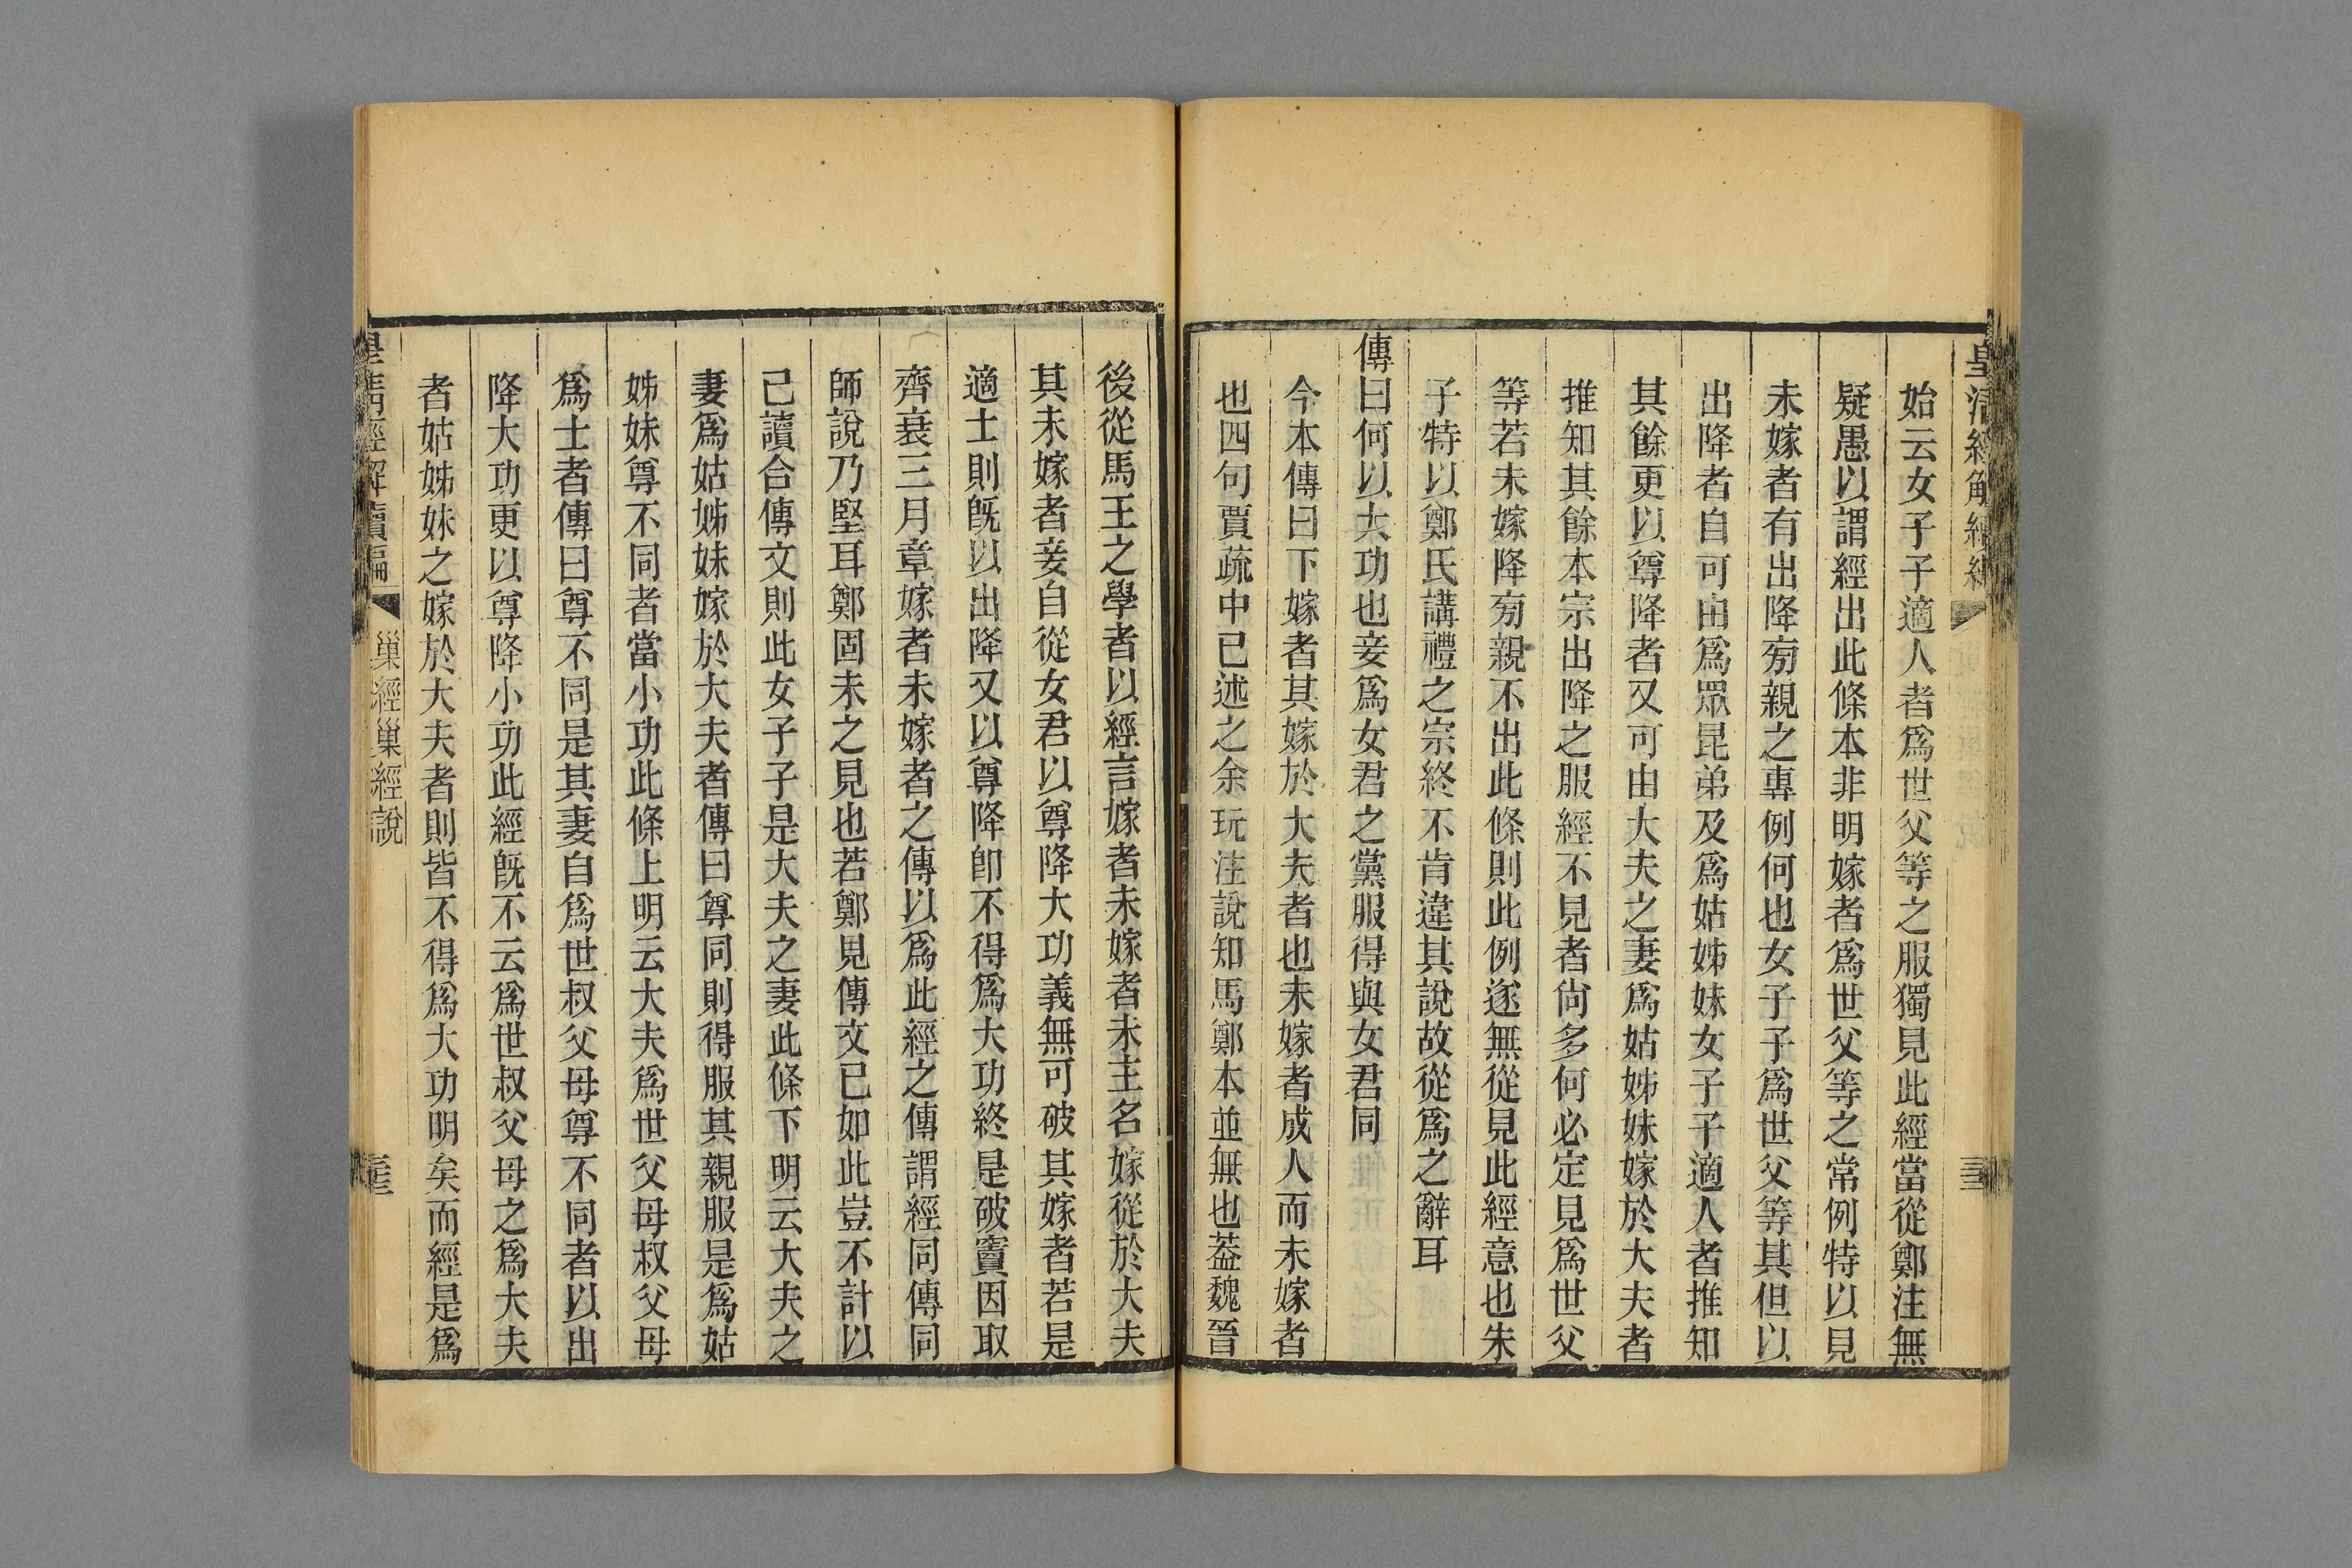 皇清經解續編
始云女子子適人者爲世父等之服獨見此經當從鄭注無
疑愚以謂經出此條本非明嫁者爲世父等之常例特以見
未嫁者有出降㫄親之專例何也女子子爲世父等其但以
出降者自可由爲眾昆弟及爲姑姊妹女子子適人者推知
其餘更以尊降者又可由大夫之妻爲姑姊妹嫁於大夫者
推知其餘本宗出降之服經不見者尙多何必定見爲世父
等若未嫁降㫄親不出此條則此例遂無從見此經意也朱
子特以鄭氏講禮之宗終不肯違其說故從爲之辭耳
傳曰何以大功也妾爲女君之黨服得與女君同
今本傳曰下嫁者其嫁於大夫者也未嫁者成人而未嫁者
也四句賈疏中已述之余玩注說知馬鄭本並無也葢魏晉
後從馬王之學者以經言嫁者未嫁者未主名嫁從於大夫
其未嫁者妾自從女君以尊降大功義無可破其嫁者若是
適士則旣以出降又以尊降卽不得爲大功終是破竇因取
齊衰三月章嫁者未嫁者之傳以爲此經之傳謂經同傳同
師說乃堅耳鄭固未之見也若鄭見傳文已如此豈不計以
己讀合傳文則此女子子是大夫之妻此條下明云大夫之
妻爲姑姊妹嫁於大夫者傳曰尊同則得服其親服是爲姑
姊妹尊不同者當小功此條上明云大夫爲世父母叔父母
爲士者傳曰尊不同是其妻自爲世叔父母尊不同者以出
降大功更以尊降小功此經旣不云爲世叔父母之爲大夫
者姑姊妹之嫁於大夫者則皆不得爲大功明矣而經是爲
皇清經解續編
巢經巢經說